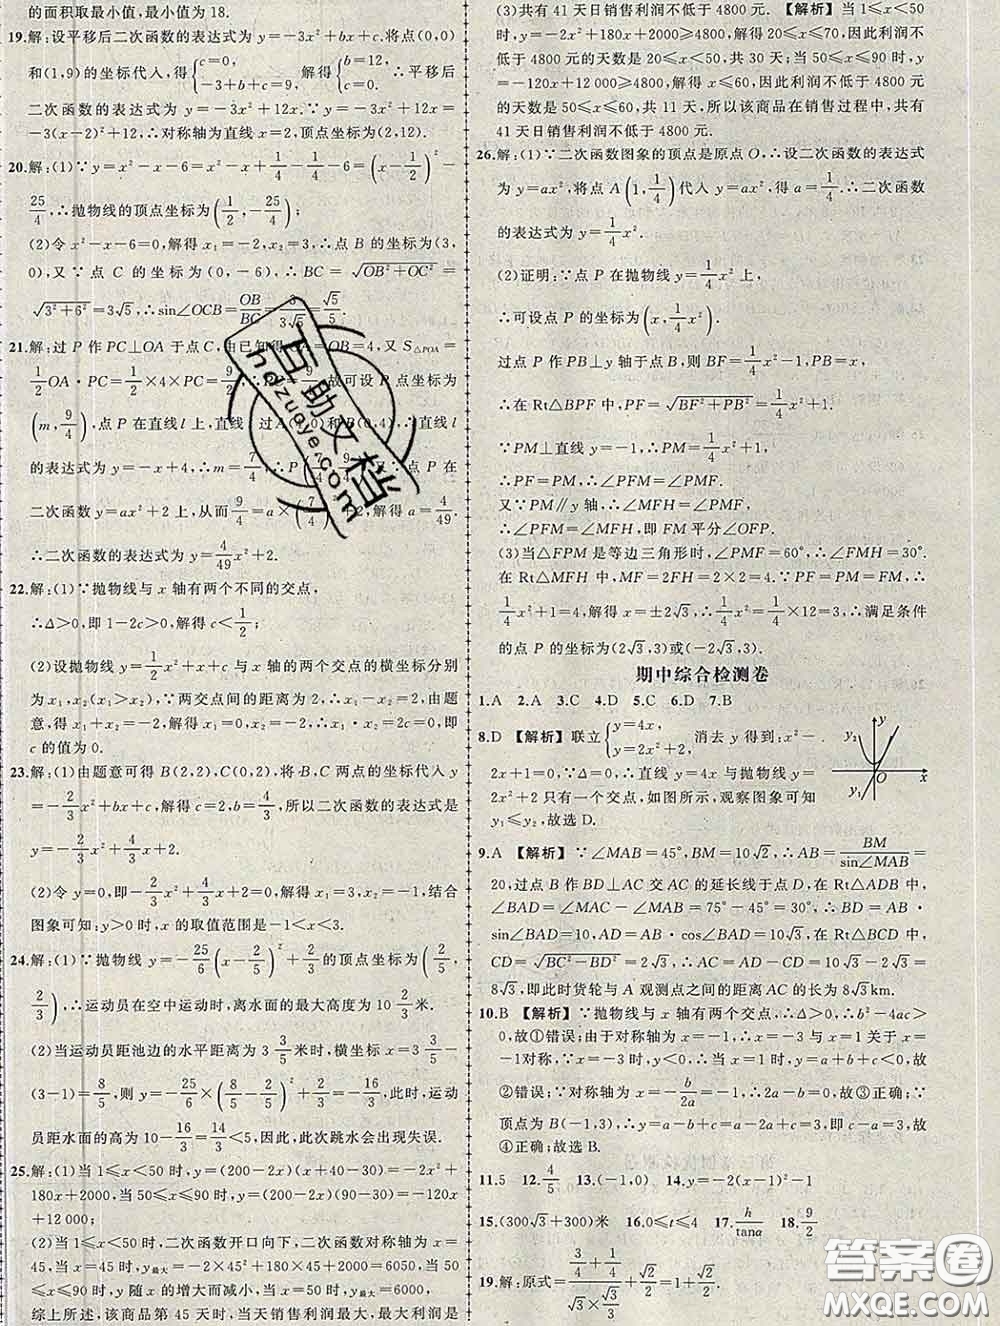 的面积取最小值,最小值为 18.
19.解:设平移后二次函数的表达式为 y=-3x²+bx+c.将点(0,0)
和(1,9)的坐标代入,得{c=0, -3+b+c=9, 解得{b=12, c=0. ∴平移后
二次函数的表达式为 y=-3x²+12x.∵y=-3x²+12x=
-3(x-2)²+12,∴对称轴为直线 x=2,顶点坐标为(2,12).
20.解:(1)∵y=x²-x-6=x²-x+1/4-1/4-6=(x-1/2)²-
25/4,∴抛物线的顶点坐标为(1/2,-25/4);
(2)令 x²-x-6=0,解得 x₁=-2,x₂=3;∴点 B 的坐标为(3,
0),又∵点 C 的坐标为(0,-6),∴BC=√(OB²+OC²)=
√(3²+6²)=3√5,∴sin∠OCB=OB/BC=3/(3√5)=√5/5.
21.解:过 P 作 PC⊥OA 于点 C,由已知得 OA=OB=4,又 S△POA=
1/2 OA·PC=1/2×4×PC=9/2,故可设 P 点坐标为
(m,9/4),点 P 在直线 l 上,直线 l 过 A(4,0)和 B(0,4),∴直线 l
的表达式为 y=-x+4,∴m=7/4,∴P(7/4,9/4).∵点 P 在
二次函数 y=ax²+2 上,从而 9/4=a×(7/4)²+2,解得 a=4/49.
∴二次函数的表达式为 y=4/49 x²+2.
22.解:(1)∵抛物线与 x 轴有两个不同的交点,
∴Δ>0,即 1-2c>0,解得 c<1/2;
(2)设抛物线 y=1/2 x²+x+c 与 x 轴的两个交点的横坐标分别
为 x₁,x₂(x₁>x₂),∵两交点间的距离为 2,∴x₁-x₂=2,由题
意,得 x₁+x₂=-2,解得 x₁=0,x₂=-2,∴x₁·x₂=2c=0,即
c 的值为 0.
23.解:(1)由题意可得 B(2,2),C(0,2),将 B,C 两点的坐标代入 y
=-2/3 x²+bx+c,解得 c=2,b=4/3,所以二次函数的表达式是
y=-2/3 x²+4/3 x+2.
(2)令 y=0,即-2/3 x²+4/3 x+2=0,解得 x₁=3,x₂=-1,结合
图象可知:y>0 时,x 的取值范围是-1<x<3.
24.解:(1)∵抛物线 y=-25/6(x-2/5)²+2/3 的顶点坐标为(2/5,
2/3),∴运动员在空中运动时,离水面的最大高度为 10 2/3 米.
(2)当运动员距池边的水平距离为 3 3/5 米时,横坐标 x=3 3/5-
(3-1)=8/5,所以,y=-25/6×(8/5-2/5)²+2/3=-16/3,此时,运动
员距水面的高为 10-16/3=14/3<5,因此,此次跳水会出现失误.
25.解:(1)当 1≤x<50 时,y=(200-2x)(x+40-30)=-2x²+
180x+2000,当 50≤x≤90 时,y=(200-2x)(90-30)=-120x
+12 000;
(2)当 1≤x<50 时,二次函数开口向下,二次函数对称轴为 x=
45,当 x=45 时,y最大=-2×45²+180×45+2000=6050,当 50
≤x≤90 时,y 随 x 的增大而减小,当 x=50 时,y最大=6000,
综上所述,该商品第 45 天时,当天销售利润最大,最大利润是
(3)共有 41 天日销售利润不低于 4800 元.【解析】当 1≤x<50
时,y=-2x²+180x+2000≥4800,解得 20≤x≤70,因此利润
不低于 4800 元的天数是 20≤x<50,共 30 天;当 50≤x≤90 时,y
=-120x+12 000≥4800,解得 x≤60,因此利润不低于 4800 元
的天数是 50≤x≤60,共 11 天,所以该商品在销售过程中,共有
41 天日销售利润不低于 4800 元.
26.解:(1)∵二次函数图象的顶点是原点 O,∴设二次函数的表达式
为 y=ax²,将点 A(1,1/4)代入 y=ax²,得 a=1/4.∴二次函数
的表达式为 y=1/4 x².
(2)证明:∵点 P 在抛物线 y=1/4 x² 上,
∴可设点 P 的坐标为(x,1/4 x²).
过点 P 作 PB⊥y 轴于点 B,则 BF=1/4 x²-1,PB=x.
∴在 Rt△BPF 中,PF=√(BF²+PB²)=1/4 x²+1.
∵PM⊥直线 y=-1,∴PM=1/4 x²+1.
∴PF=PM,∴∠PFM=∠PMF.
又∵PM∥y 轴,∴∠MFH=∠PMF.
∴∠PFM=∠MFH,即 FM 平分∠OFP.
(3)当△FPM 是等边三角形时,∠PMF=60°,∴∠FMH=30°.
在 Rt△MFH 中,MF=2FH=2×2=4.∵PF=PM=FM,∴
1/4 x²+1=4,解得 x=±2√3,∴1/4 x²=1/4×12=3,∴满足条件
的点 P 的坐标为(2√3,3)或(-2√3,3).
期中综合检测卷
1.A 2.A 3.C 4.D 5.C 6.D 7.B
8.D 【解析】联立{y=4x, y=2x²+2, 消去 y 得到:x²-
2x+1=0,∵Δ=0,∴直线 y=4x 与抛物线 y=
2x²+2 只有一个交点,如图所示,观察图象可知
y₁≤y₂,故选 D.
y y₂ O x y₁
9.A 【解析】∵∠MAB=45°,BM=10√2,∴AB=BM/sin∠MAB=
20,过点 B 作 BD⊥AC 交 AC 的延长线于点 D,在 Rt△ADB 中,
∠BAD=∠MAC-∠MAB=75°-45°=30°,∴BD=AB·
sin∠BAD=10,AD=AB·cos∠BAD=10√3,在 Rt△BCD 中,
CD=√(BC²-BD²)=2√3,∴AC=AD-CD=10√3-2√3=
8√3,即此时货轮与 A 观测点之间的距离 AC 的长为 8√3km.
10.B 【解析】∵抛物线与 x 轴有两个交点,∴Δ>0,∴b²-4ac>
0,故①错误;由于对称轴为 x=-1,∴x=-3 与 x=1 关于 x=
-1对称,∵x=-3 时,y<0,∴x=1 时,y=a+b+c<0,故
②错误;∵对称轴为 x=-b/2a=-1,∴2a-b=0,故③正确;∵
顶点为 B(-1,3),∴y=a-b+c=a-2a+c=3,即 c-a=3,故
④正确;故选 B.
11.5 12.4/5 13.(-1,0) 14.y=-2(x-1)²-1
15.(300√3+300)米 16.0≤t≤4 17.h/tanα 18.9/2
19.解:原式=(3/4+1/4)/(√3×√3/3)+√2/2=1+√2/2.
百助文档
hdzuoye.com
答案圈
MXQE.COM